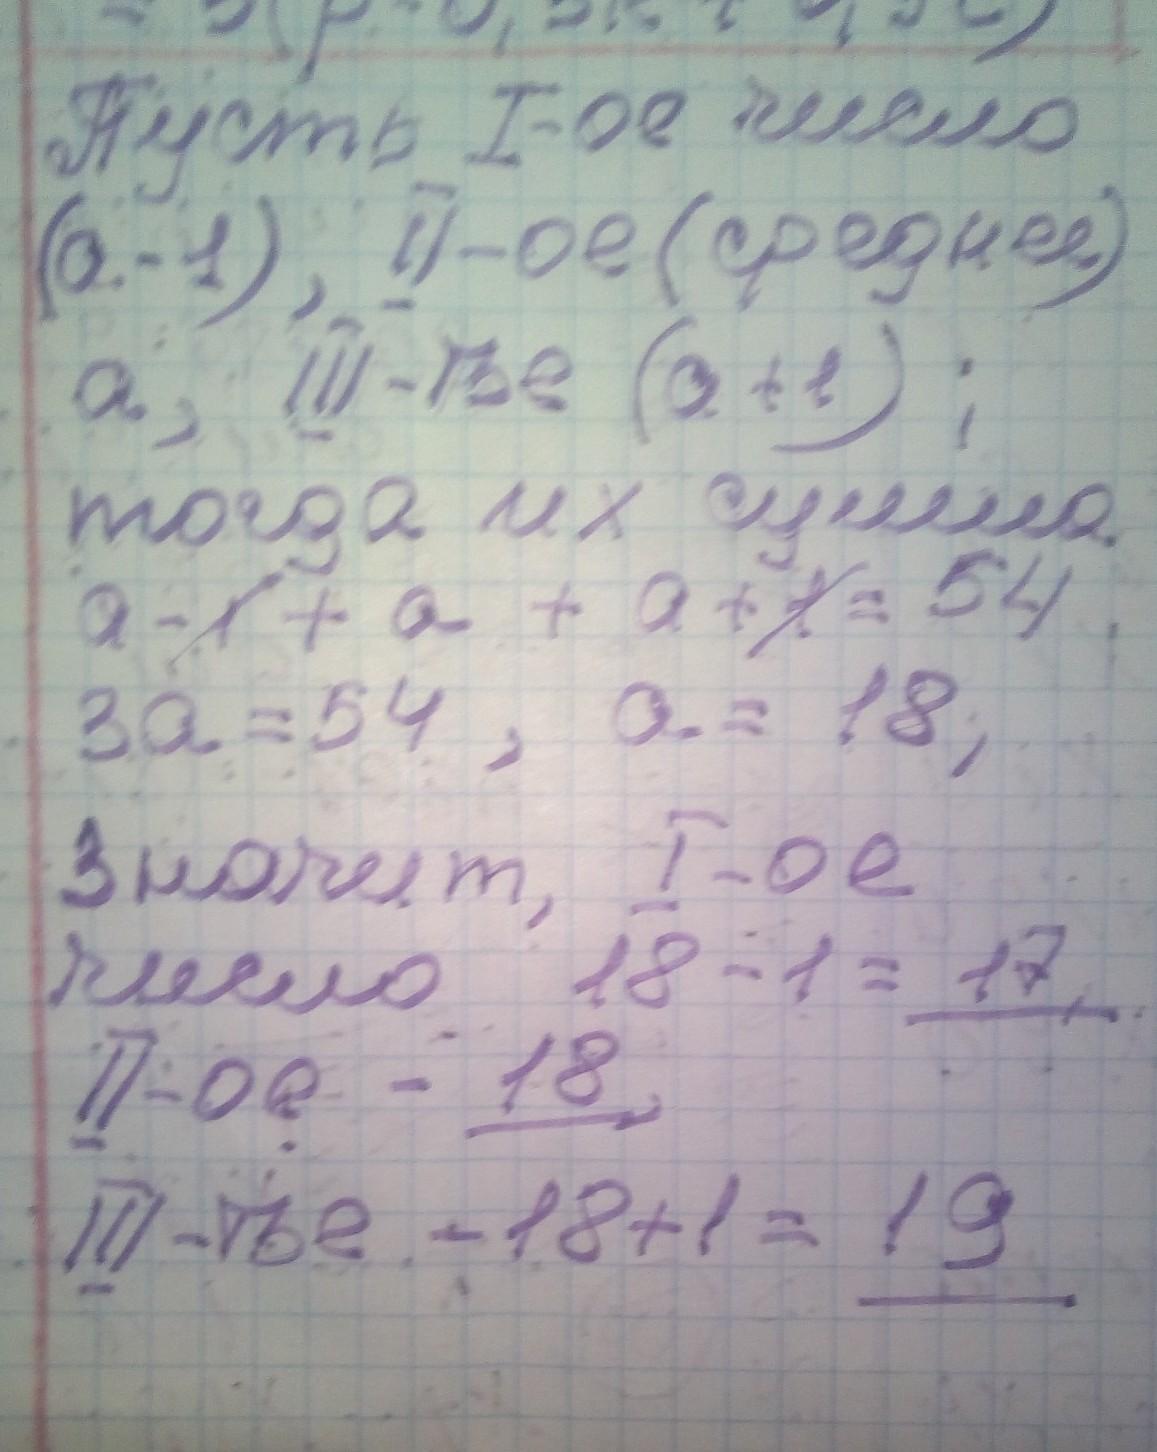 Пусть I-ое число
(а-1), II-ое (среднее)
а, III-тье (а+1);
тогда их сумма
а-1+а+а+1=54
3а=54, а=18;
Значит, I-ое
число 18-1=17,
II-ое - 18,
III-тье - 18+1=19